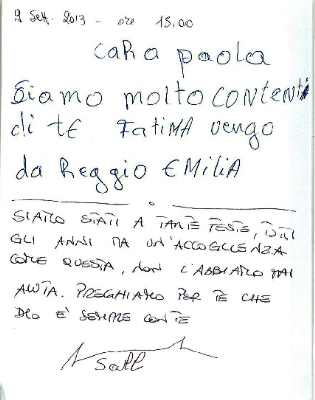 9 Sett. 2013 - ore 15.00
cara paola
Siamo molto contenti
di te Fatima vengo
da Reggio EMILIA
SIAMO STATI A TANTE FESTE, TUTTI
GLI ANNI MA UN'ACCOGLIENZA
COME QUESTA, NON L'ABBIAMO MAI
AVUTA. PREGHIAMO PER TE CHE
DIO E' SEMPRE CON TE
Sall